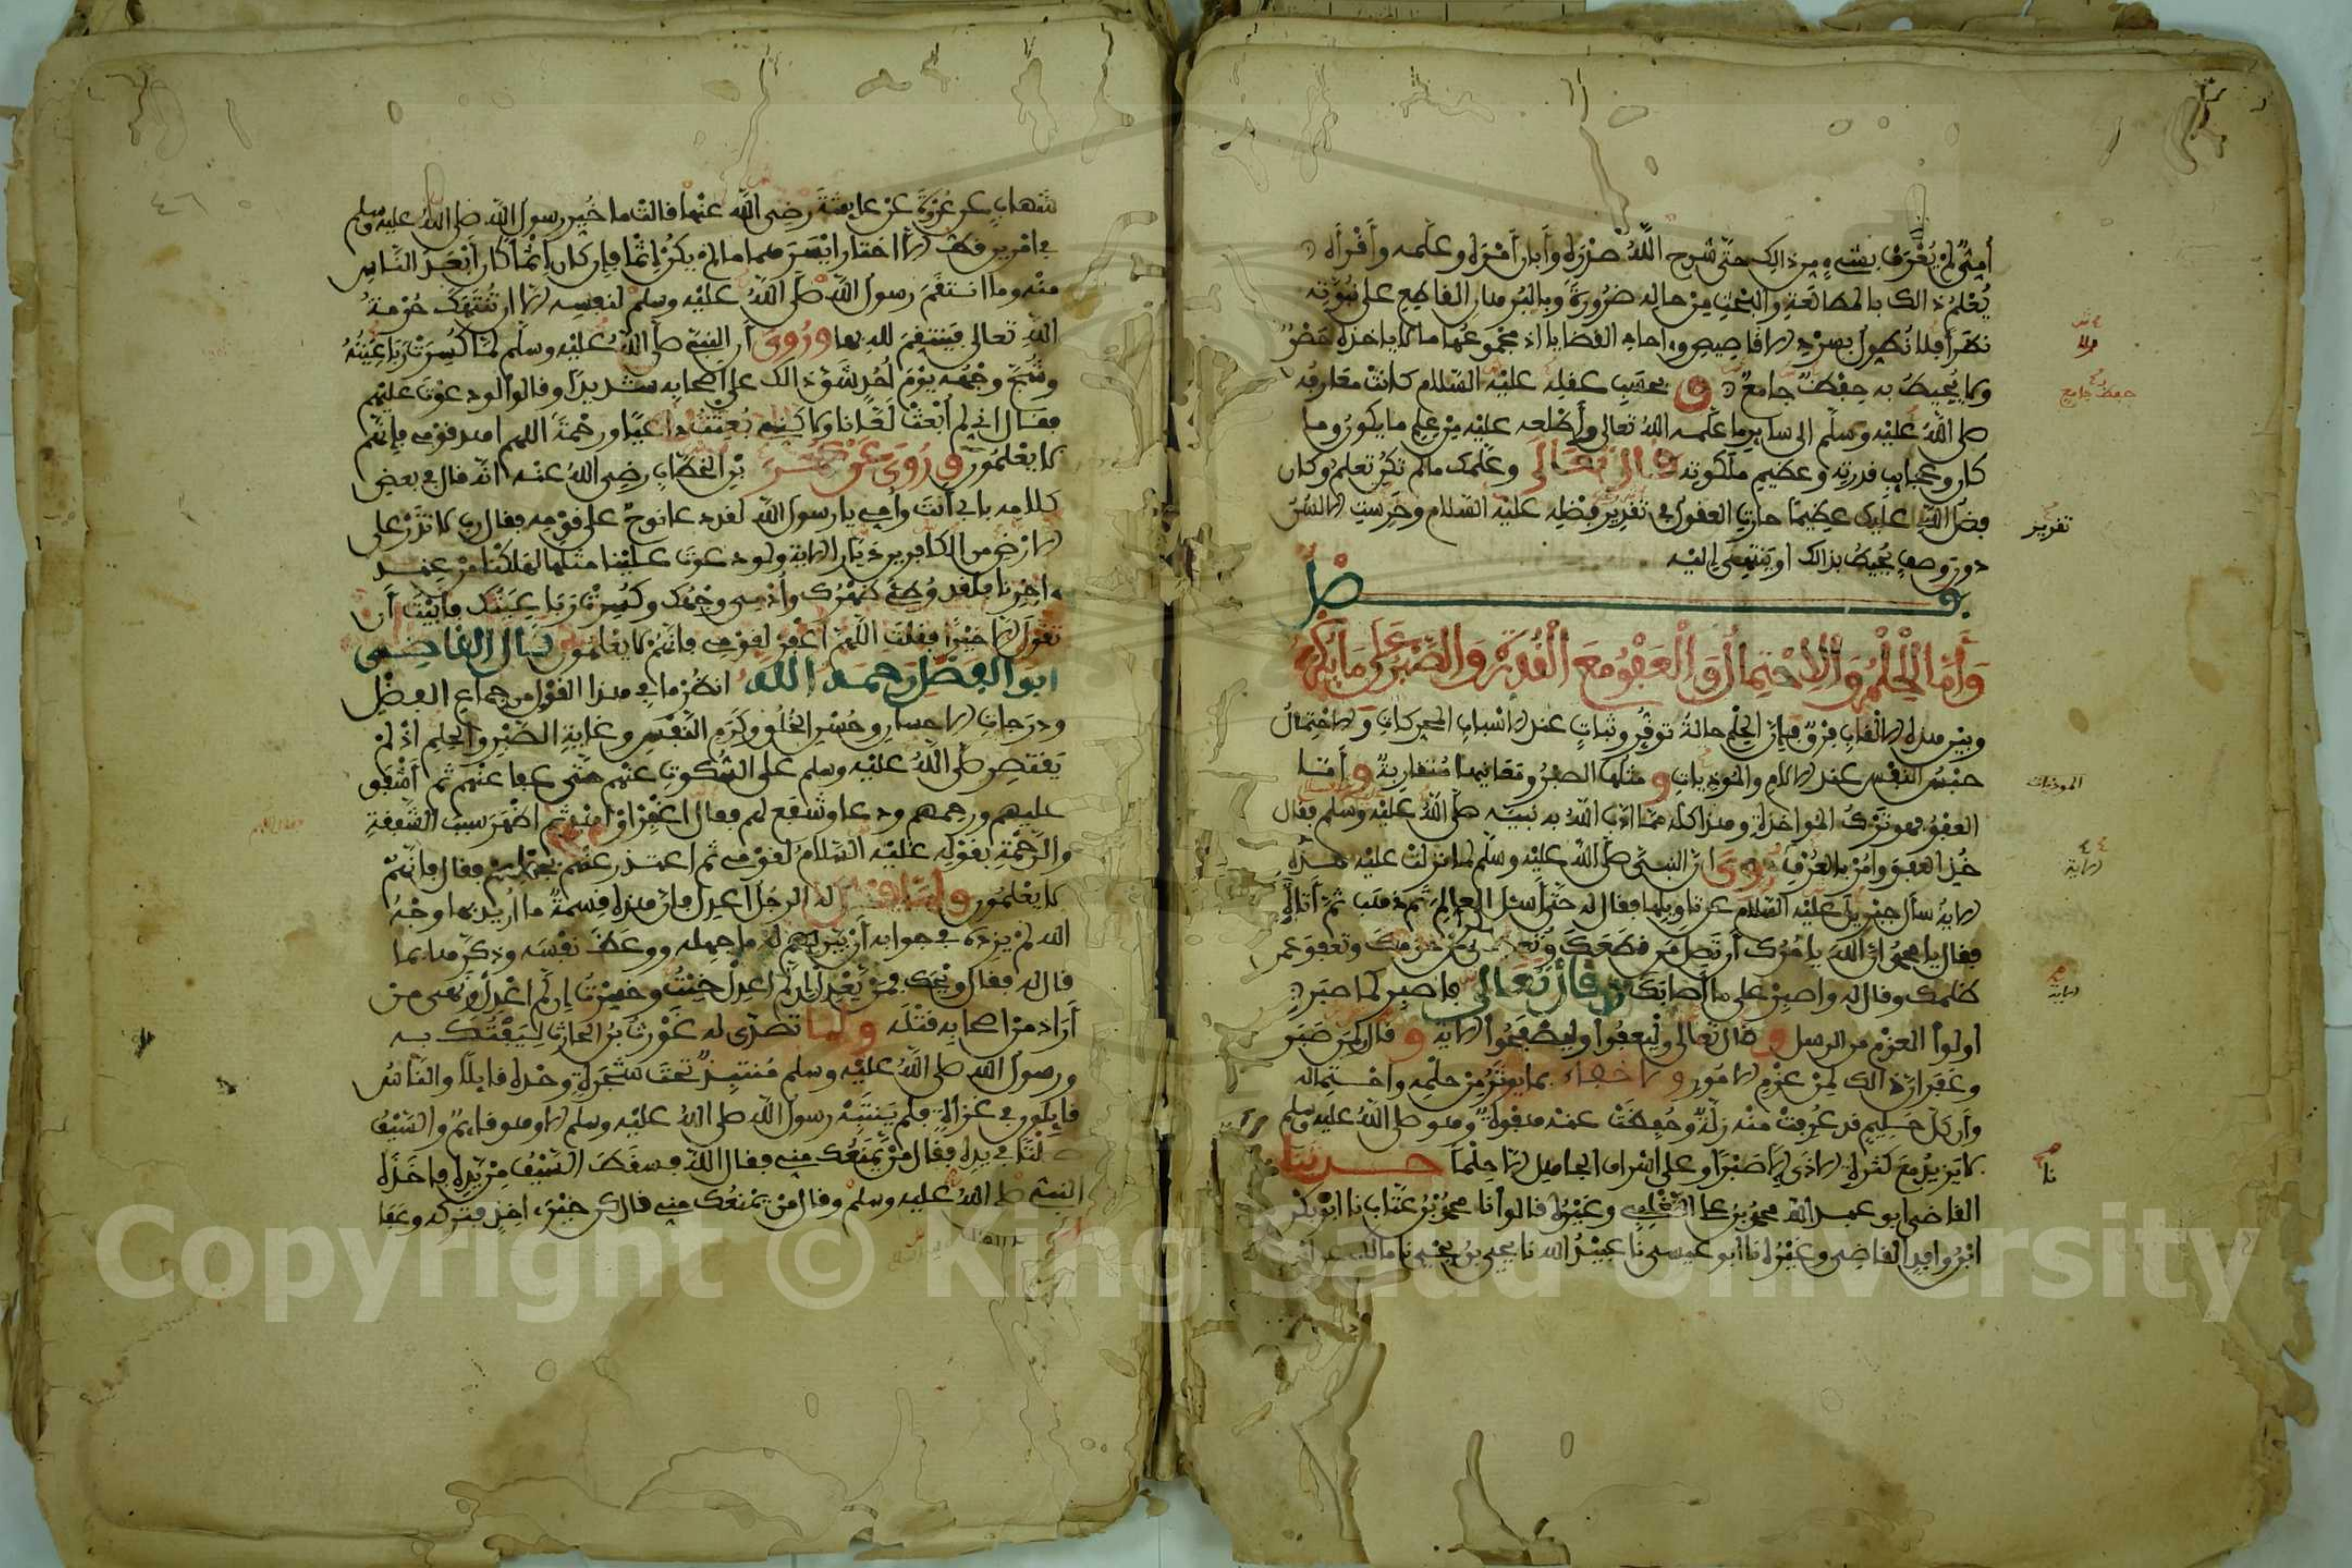 أمي لم يعرف بشيء من ذالك حتى شرح الله صدره وأبان أمره وعلمه وأقرأه
يعلم ذالك بالمطالعة والبحث من حاله ضرورة وبالبرهان القاطع على نبوته
نظرا فلا نطول بسرد الاقاصيص وءاحاد القضايا اذ مجموعها ما لا ياخذه حصر
ولا يحيط به حفظ جامع و بحسب عقله عليه السلام كانت معارفه
صلى الله عليه وسلم الى ساير ما علمه الله تعالى وأطلعه عليه من علم ما يكون وما
كان وعجايب قدرته وعظيم ملكوته قال تعالى وعلمك مالم تكن تعلم وكان
فضل الله عليك عظيما حارت العقول في تقدير فضله عليه السلام وخرست الالسن
دون وصف يحيط بذالك او ينتهي اليه
فصل
وأما الحلم والاحتمال والعفو مع القدرة والصبر على ما يكره
وبين هذه الالقاب فرق فإن الحلم حالة توقر وثبات عند الاسباب المحركات والاحتمال
حبس النفس عند الالام والموذيات و مثلها الصبر ومعانيها متقاربة وأما
العفو فهو ترك المواخذة وهذا كله مما ادب الله به نبيه صلى الله عليه وسلم فقال
خذ العفو وامر بالعرف روى ان النبي صلى الله عليه وسلم لما نزلت عليه هذه
الاية سأل جبريل عليه السلام عن تاويلها فقال له حتى أسئل العالم ثم ذهب ثم أتاه
فقال يا محمد ان الله يامرك أن تصل من قطعك وتعطي من حرمك وتعفو عمن
ظلمك وقال له واصبر على ما أصابك وقال تعالى فاصبر كما صبر
اولوا العزم من الرسل و قال تعالى وليعفوا وليصفحوا الاية و قال ولمن صبر
وغفر ان ذالك لمن عزم الامور ولا خفاء بما يوثر من حلمه واحتماله
وأن كل حليم قد عرفت منه زلة وحفظت عنه هفوة وهو صلى الله عليه وسلم
لا يزيد مع كثرة الاذى الا صبرا وعلى اسراف الجاهل الا حلما حدثنا
القاضي ابو عبد الله محمد بن علي التغلبي وغيره قالوا نا محمد بن عتاب نا ابو بكر
ابن وافد القاضي وغيره نا أبو عيسى نا عبيد الله نا يحيى بن يحيى نا مالك عن ابن
حفظ جامع
تقرير
الموذيات
الاية
نا
شهاب عن عروة عن عايشة رضي الله عنها قالت ما خير رسول الله صلى الله عليه وسلم
في امرين قط الا اختار ايسرهما ما لم يكن إثما فإن كان إثما كان أبعد الناس
منه وما انتقم رسول الله صلى الله عليه وسلم لنفسه الا ان تنتهك حرمة
الله تعالى فينتقم لله بها وروى أن النبي صلى الله عليه وسلم لما كسرت رباعيته
وشج وجهه يوم أحد شق ذالك على أصحابه شديدا وقالوا لو دعوت عليهم
فقال اني لم أبعث لعانا ولاكني بعثت داعيا ورحمة اللهم اهد قومي فإنهم
لا يعلمون وروى عن عمر بن الخطاب رضي الله عنه انه قال في بعض
كلامه بابي أنت وأمي يا رسول الله لقد دعا نوح على قومه فقال رب لا تذر على
الارض من الكافرين ديارا الاية ولو دعوت علينا مثلها لهلكنا من عند
ءاخرنا فلقد وطئ ظهرك وأدمي وجهك وكسرت رباعيتك فأبيت أن
تقول الا خيرا فقلت اللهم اغفر لقومي فانهم لا يعلمون قال القاضي
ابو الفضل رحمه الله انظر ما في هذا القول من جماع الفضل
ودرجات الاحسان وحسن الخلق وكرم النفس وغاية الصبر والحلم اذ لم
يقتصر صلى الله عليه وسلم على السكوت عنهم حتى عفا عنهم ثم أشفق
عليهم ورحمهم ودعا وشفع لهم فقال اغفر او اهد ثم اظهر سبب الشفقة
والرحمة بقوله عليه السلام لقومي ثم اعتذر عنهم بجهلهم فقال فانهم
لا يعلمون ولما قال له الرجل اعدل فإن هذه قسمة ما أريد بها وجه
الله لم يزده في جوابه أن بين له ما جهله ووعظ نفسه وذكرها بما
قال له فقال ويحك فمن يعدل إن لم اعدل خبت وخسرت إن لم اعدل ونهى من
أراد من اصحابه قتله ولما تصدى له غورث بن الحارث ليفتك به
ورسول الله صلى الله عليه وسلم منتبذ تحت شجرة وحده قايلا والناس
قايلون في غزاة فلم ينتبه رسول الله صلى الله عليه وسلم الا وهو قايم والسيف
صلتا في يده فقال من يمنعك مني فقال الله فسقط السيف من يده فاخذه
النبي صلى الله عليه وسلم وقال من يمنعك مني قال كن خير ءاخذ فتركه وعفا
٤٦
Copyright © King Saud University